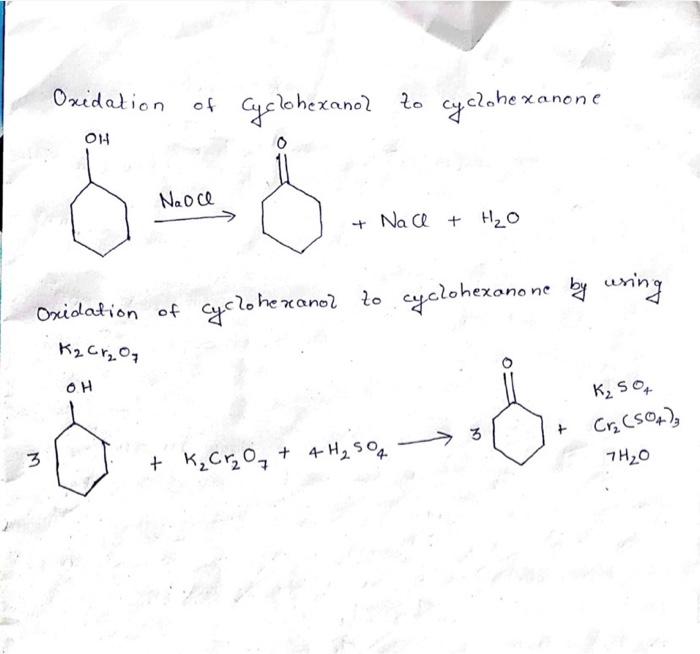 Oxidation of Cyclohexanol to cyclohexanone
OH
O
NaOCl
+ NaCl + H₂O
Oxidation of cyclohexanol to cyclohexanone by using
K₂Cr₂O₇
OH
O
3 + K₂Cr₂O₇ + 4H₂SO₄ → 3 +
K₂SO₄
Cr₂(SO₄)₃
7H₂O